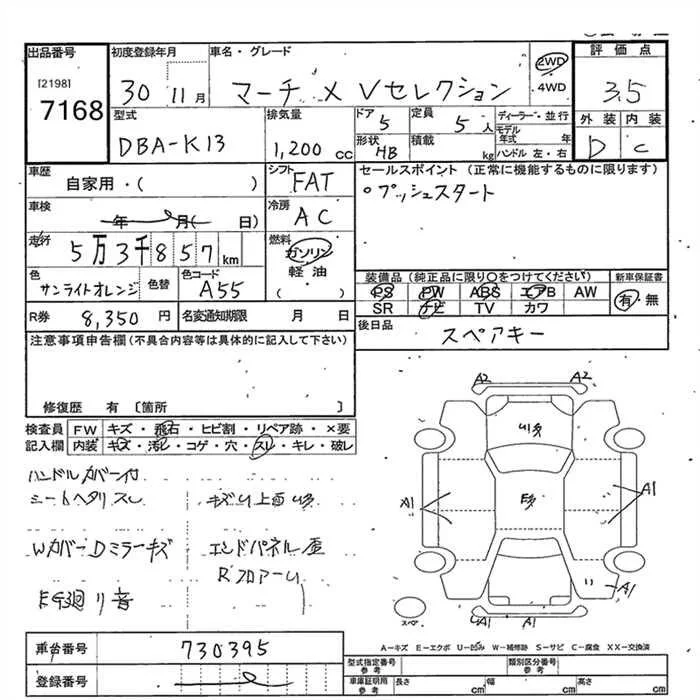 出品番号 初度登録年月 車名・グレード 評価点
[2198] 7168 30 11月 マーチ X Vセレクション 2WD 4WD 3.5
型式 排気量 ドア 定員 ディーラー・並行 外装 内装
DBA-K13 1,200 cc 5 5人 モデル年式 年 D C
形状 HB 積載 kg ハンドル 左・右
車歴 シフト セールスポイント (正常に機能するものに限ります)
自家用・( ) FAT ○プッシュスタート
車検 年 月( 日) 冷房 AC
走行 5万3千857km 燃料 ガソリン 軽油 ( )
色 サンライトオレンジ 色替 色コード A55
装備品(純正品に限り○をつけてください) 新車保証書
PS PW ABS エアB AW 有・無
SR ナビ TV カワ
R券 8,350円 名変通知期限 月 日 後日品 スペアキー
注意事項申告欄(不具合内容等は具体的に記入して下さい)
修復歴 有 〔箇所 〕
検査員 FW キズ・飛石・ヒビ割・リペア跡・×要
記入欄 内装 キズ・汚レ・コゲ・穴・スレ・キレ・破レ
ハンドルカバー付
シートヘタリスレ キズU上面U多
WカバーDミラーキズ エンドパネル歪
RフロアーU
EG廻り音
A2 A2
U多
E多
A1 A1
A1
A1 A1
スペア
A-キズ E-エクボ U-凹み W-補修跡 S-サビ C-腐食 XX-交換済
車台番号 730395
登録番号
型式指定番号 参考 類別区分番号 参考
車庫証明用 参考 長さ cm 幅 cm 高さ cm